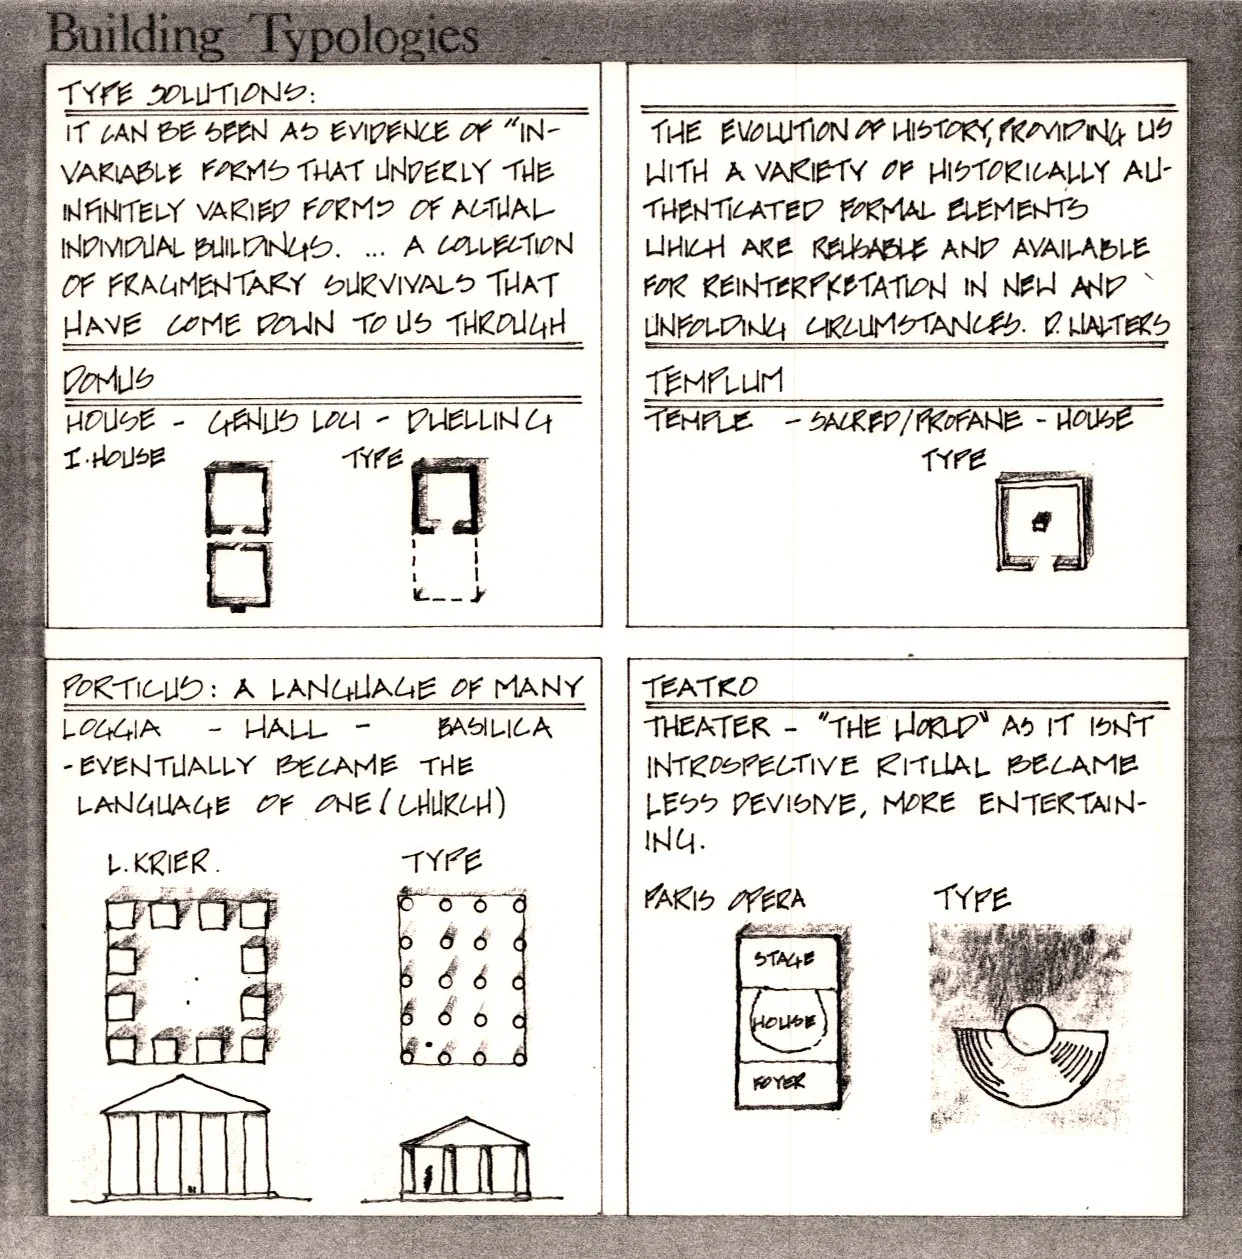 Building Typologies
TYPE SOLUTIONS:
IT CAN BE SEEN AS EVIDENCE OF "IN-
VARIABLE FORMS THAT UNDERLY THE
INFINITELY VARIED FORMS OF ACTUAL
INDIVIDUAL BUILDINGS. ... A COLLECTION
OF FRAGMENTARY SURVIVALS THAT
HAVE COME DOWN TO US THROUGH
THE EVOLUTION OF HISTORY, PROVIDING US
WITH A VARIETY OF HISTORICALLY AU-
THENTICATED FORMAL ELEMENTS
WHICH ARE REUSABLE AND AVAILABLE
FOR REINTERPRETATION IN NEW AND
UNFOLDING CIRCUMSTANCES. D. WALTERS
DOMUS
HOUSE - GENUS LOCI - DWELLING
I. HOUSE TYPE
TEMPLUM
TEMPLE - SACRED/PROFANE - HOUSE
TYPE
PORTICUS: A LANGUAGE OF MANY
LOGGIA - HALL - BASILICA
-EVENTUALLY BECAME THE
LANGUAGE OF ONE (CHURCH)
L. KRIER. TYPE
TEATRO
THEATER - "THE WORLD" AS IT ISN'T
INTROSPECTIVE RITUAL BECAME
LESS DEVISIVE, MORE ENTERTAIN-
ING.
PARIS OPERA TYPE
STAGE
HOUSE
FOYER